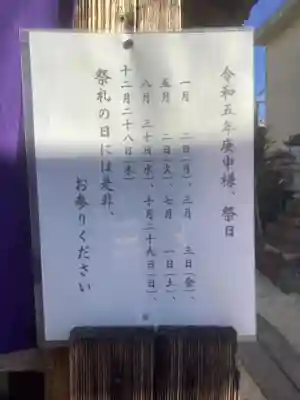 令和五年庚申様、祭日
一月　二日（月）、三月　三日（金）、
五月　二日（火）、七月　一日（土）、
八月　三十日（水）、十月二十九日（日）、
十二月二十八日（木）
祭礼の日には是非、
お参りください